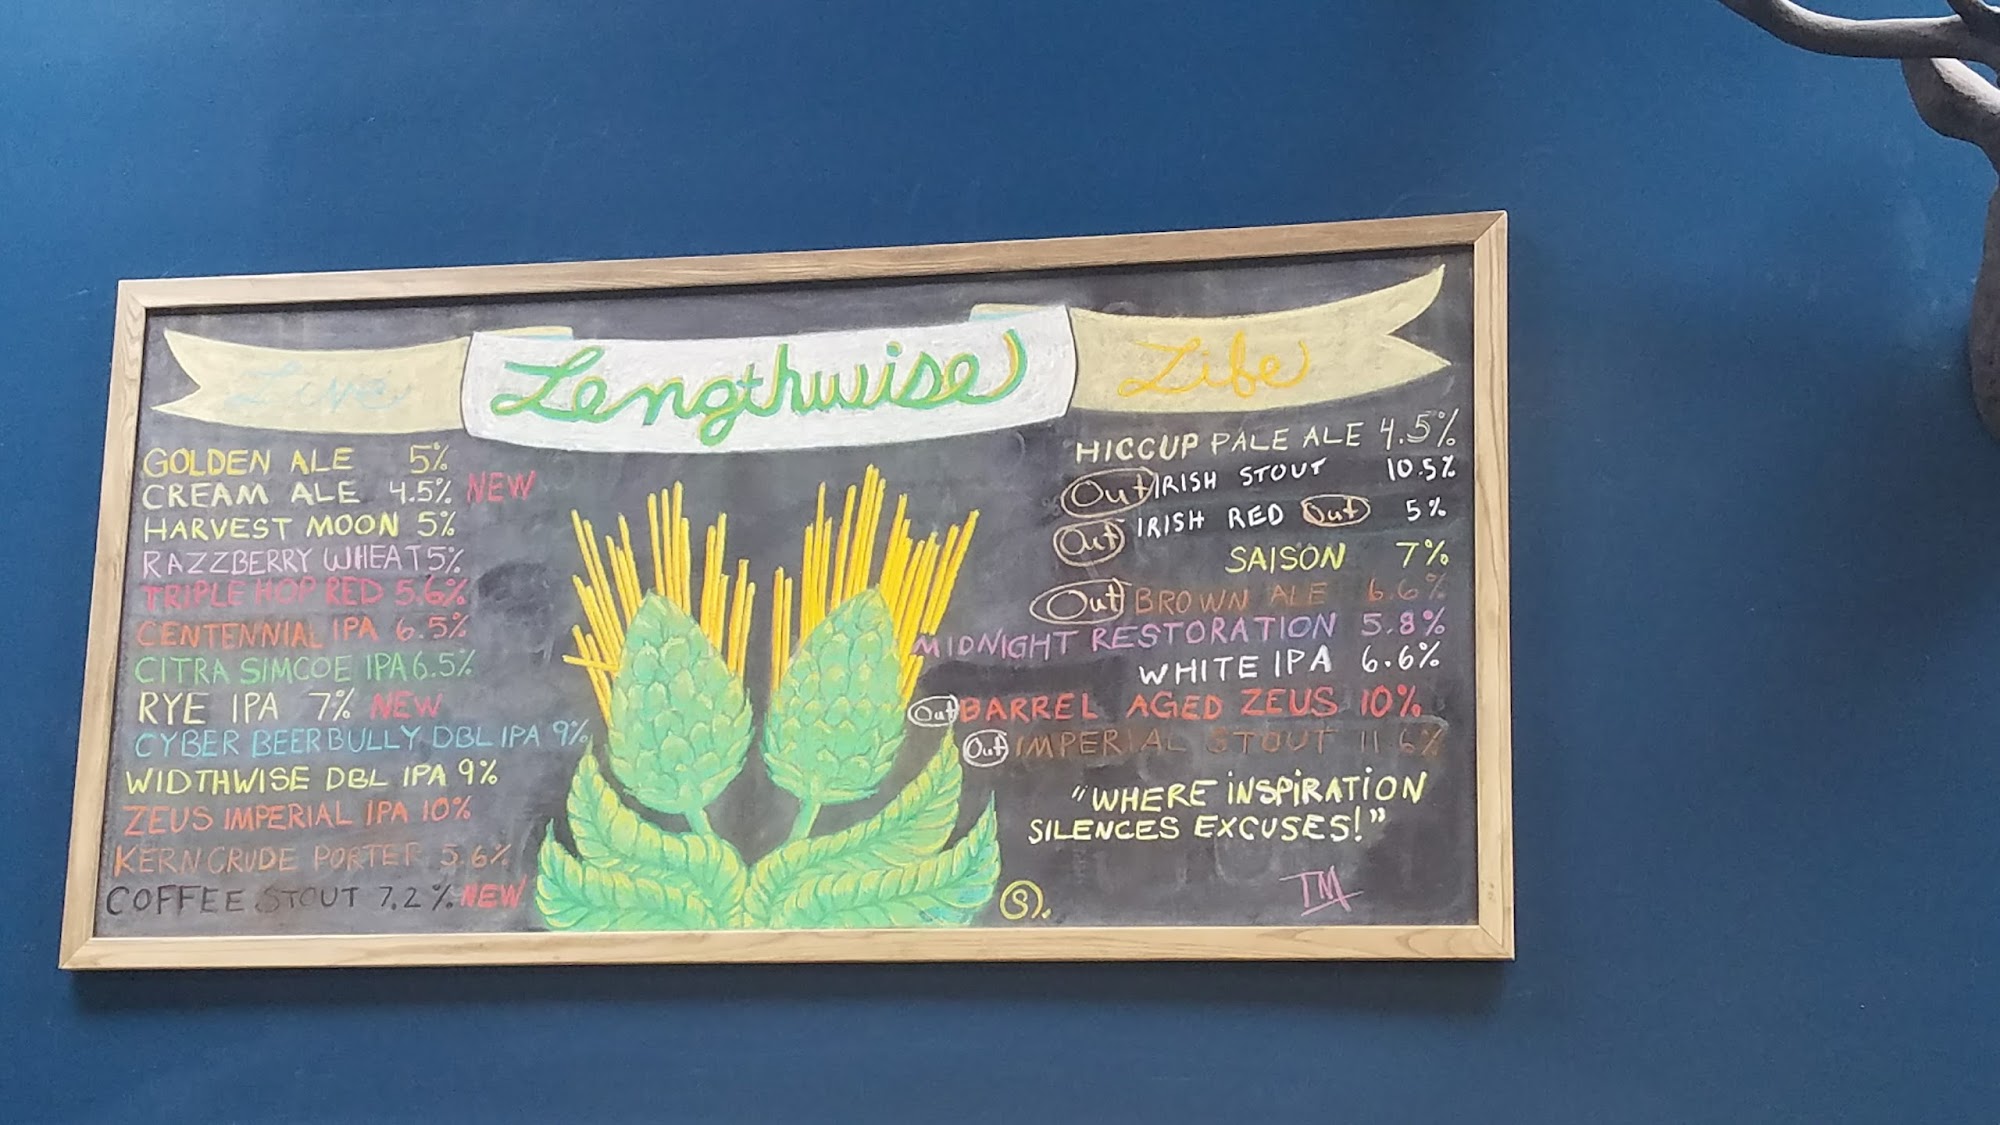 Live Lengthwise Life
GOLDEN ALE 5%
CREAM ALE 4.5% NEW
HARVEST MOON 5%
RAZZBERRY WHEAT 5%
TRIPLE HOP RED 5.6%
CENTENNIAL IPA 6.5%
CITRA SIMCOE IPA 6.5%
RYE IPA 7% NEW
CYBER BEERBULLY DBL IPA 9%
WIDTHWISE DBL IPA 9%
ZEUS IMPERIAL IPA 10%
KERN CRUDE PORTER 5.6%
COFFEE STOUT 7.2% NEW
HICCUP PALE ALE 4.5%
Out IRISH STOUT 10.5%
Out IRISH RED Out 5%
SAISON 7%
Out BROWN ALE 6.6%
MIDNIGHT RESTORATION 5.8%
WHITE IPA 6.6%
Out BARREL AGED ZEUS 10%
Out IMPERIAL STOUT 11.6%
"WHERE INSPIRATION
SILENCES EXCUSES!"
TM
S.